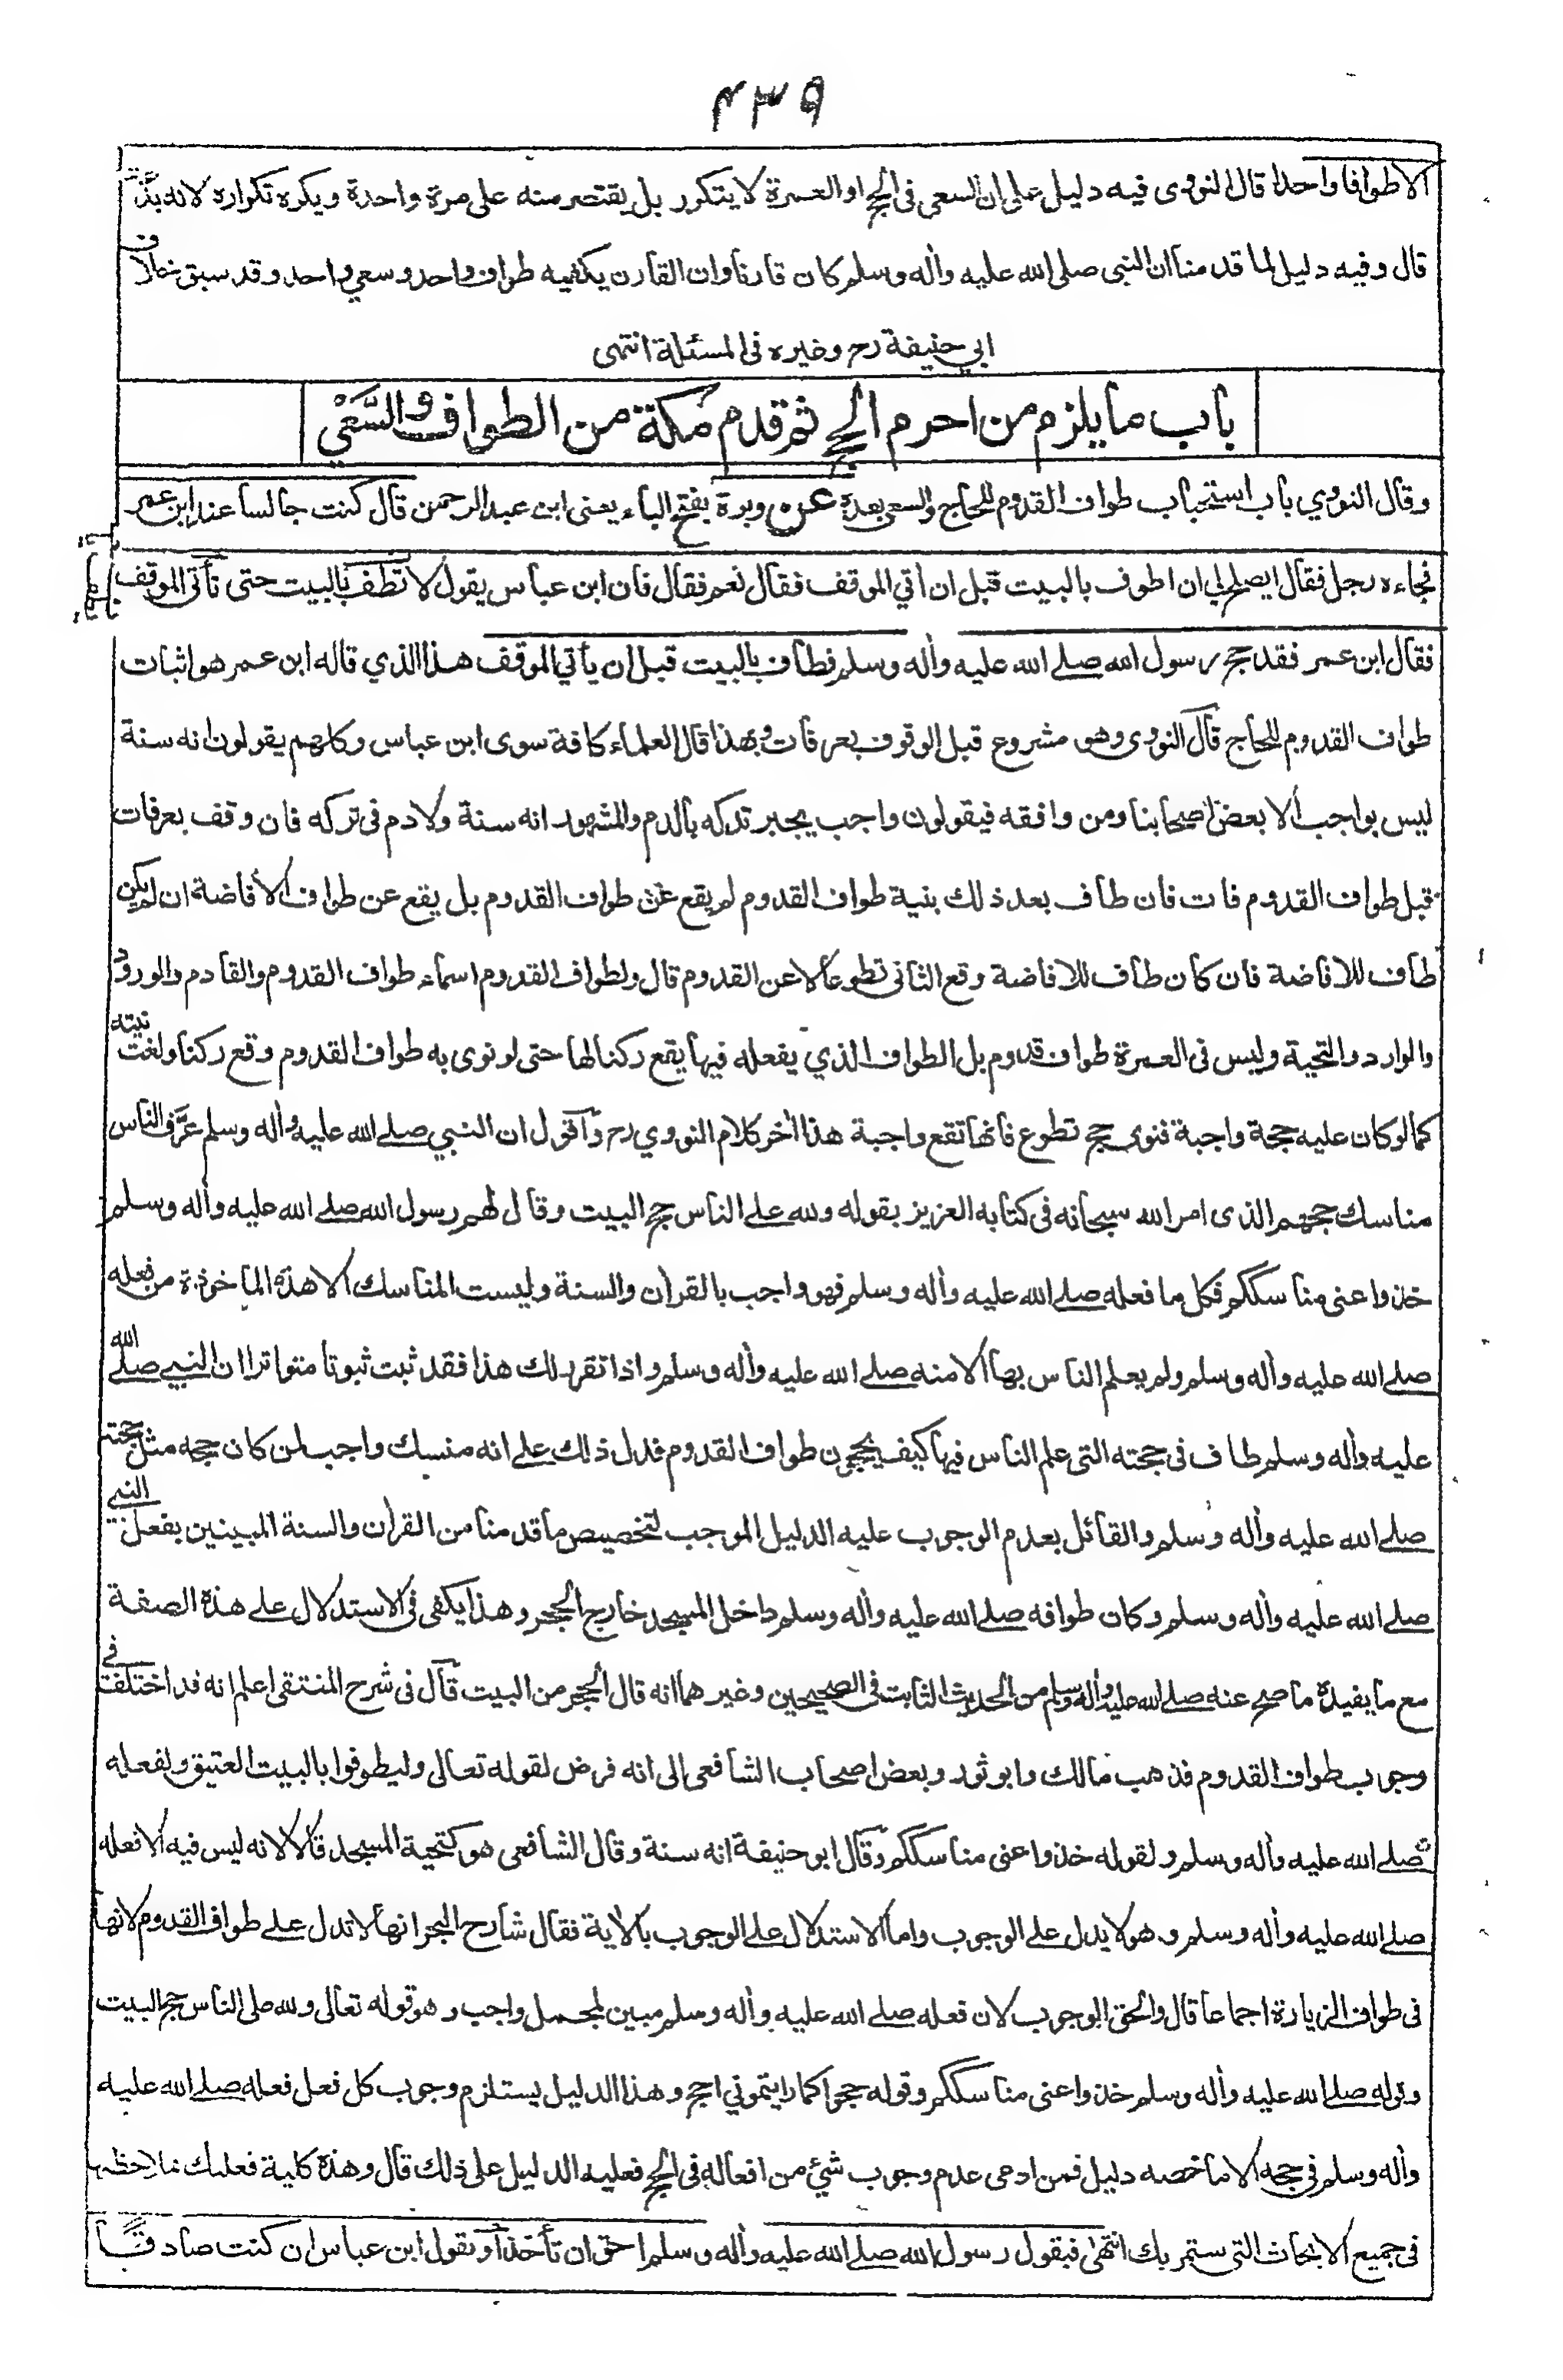 ٤٣٩
الا طوافا واحدا قال النووى فيه دليل على ان السعى فى الحج او العمرة لا يتكرر بل يقتصر منه على مرة واحدة ويكره تكراره لانه بدعة
قال وفيه دليل لما قدمنا ان النبى صلى الله عليه واٰله وسلم كان قارنا وان القارن يكفيه طواف واحد وسعي واحد وقد سبق خلاف
ابي حنيفة رح وغيره فى المسئلة انتهى
باب ما يلزم من احرم الحج ثم قدم مكة من الطواف والسَّعْي
وقال النووي باب استحباب طواف القدوم للحاج والسعى بعده عن وبرة بفتح الباء يعنى ابن عبد الرحمن قال كنت جالسا عند ابن عمر
فجاءه رجل فقال ايصلح لي ان اطوف بالبيت قبل ان اٰتي الموقف فقال نعم فقال فان ابن عباس يقول لا تطف بالبيت حتى تأتى الموقف
فقال ابن عمر فقد حج رسول الله صلے الله عليه واٰله وسلم فطاف بالبيت قبل ان يأتي الموقف هذا الذي قاله ابن عمر هو اثبات
طواف القدوم للحاج قال النووى وهو مشروع قبل الوقوف بعرفات وبهذا قال العلماء كافة سوى ابن عباس وكلهم يقولون انه سنة
ليس بواجب الا بعض اصحابنا ومن وافقه فيقولون واجب يجبر تركه بالدم والمشهور انه سنة ولا دم فى تركه فان وقف بعرفات
قبل طواف القدوم فات فان طاف بعد ذلك بنية طواف القدوم لم يقع عن طواف القدوم بل يقع عن طواف الافاضة ان لم يكن
طاف للافاضة فان كان طاف للافاضة وقع الثانى تطوعا لا عن القدوم قال ولطواف القدوم اسماء طواف القدوم والقادم والورود
والوارد والتحية وليس فى العمرة طواف قدوم بل الطواف الذي يفعله فيها يقع ركنا لها حتى لو نوى به طواف القدوم وقع ركنا ولغت نيته
كما لو كان عليه حجة واجبة فنوى حج تطوع فانها تقع واجبة هذا اٰخر كلام النووي رح واقول ان النبي صلے الله عليه واٰله وسلم عرَّف الناس
مناسك حجهم الذى امر الله سبحانه فى كتابه العزيز بقوله ولله على الناس حج البيت وقال لهم رسول الله صلے الله عليه واٰله وسلم
خذوا عنى مناسككم فكل ما فعله صلے الله عليه واٰله وسلم فهو واجب بالقراٰن والسنة وليست المناسك الا هذه الماخوذة من فعله
صلے الله عليه واٰله وسلم ولم يعلم الناس بها الا منه صلے الله عليه واٰله وسلم واذا تقرر لك هذا فقد ثبت ثبوتا متواترا ان النبي صلے الله
عليه واٰله وسلم طاف فى حجته التى علم الناس فيها كيف يحجون طواف القدوم فدل ذلك على انه منسك واجب لمن كان حجه مثل حجته
صلے الله عليه واٰله وسلم والقائل بعدم الوجوب عليه الدليل الموجب لتخصيص ما قدمنا من القراٰن والسنة المبينين بفعل النبي
صلے الله عليه واٰله وسلم وكان طوافه صلے الله عليه واٰله وسلم داخل المسجد خارج الحجر وهذا يكفى فى الاستدلال على هذه الصفة
مع ما يفيده ما صح عنه صلے الله عليه واٰله وسلم من الحديث الثابت فى الصحيحين وغيرهما انه قال الحجر من البيت قال فى شرح المنتقى اعلم انه قد اختلف فى
وجوب طواف القدوم فذهب مالك وابو ثور وبعض اصحاب الشافعى الى انه فرض لقوله تعالى وليطوفوا بالبيت العتيق ولفعله
صلے الله عليه واٰله وسلم ولقوله خذوا عنى مناسككم وقال ابو حنيفة انه سنة وقال الشافعى هو كتحية المسجد قالا لانه ليس فيه الا فعله
صلے الله عليه واٰله وسلم وهو لا يدل على الوجوب واما الاستدلال على الوجوب بالاٰية فقال شارح البحر انها لا تدل على طواف القدوم لانها
فى طواف الزيارة اجماعا قال والحق الوجوب لان فعله صلے الله عليه واٰله وسلم مبين لمجمل واجب وهو قوله تعالى ولله على الناس حج البيت
وقوله صلے الله عليه واٰله وسلم خذوا عنى مناسككم وقوله حجوا كما رايتموني احج وهذا الدليل يستلزم وجوب كل فعل فعله صلے الله عليه
واٰله وسلم في حجه الا ما خصه دليل فمن ادعى عدم وجوب شئ من افعاله فى الحج فعليه الدليل على ذلك قال وهذه كلية فعليك بملاحظتها
فى جميع الابحاث التى ستمر بك انتهى فبقول رسول الله صلے الله عليه واٰله وسلم احق ان تأخذ او بقول ابن عباس ان كنت صادقًا